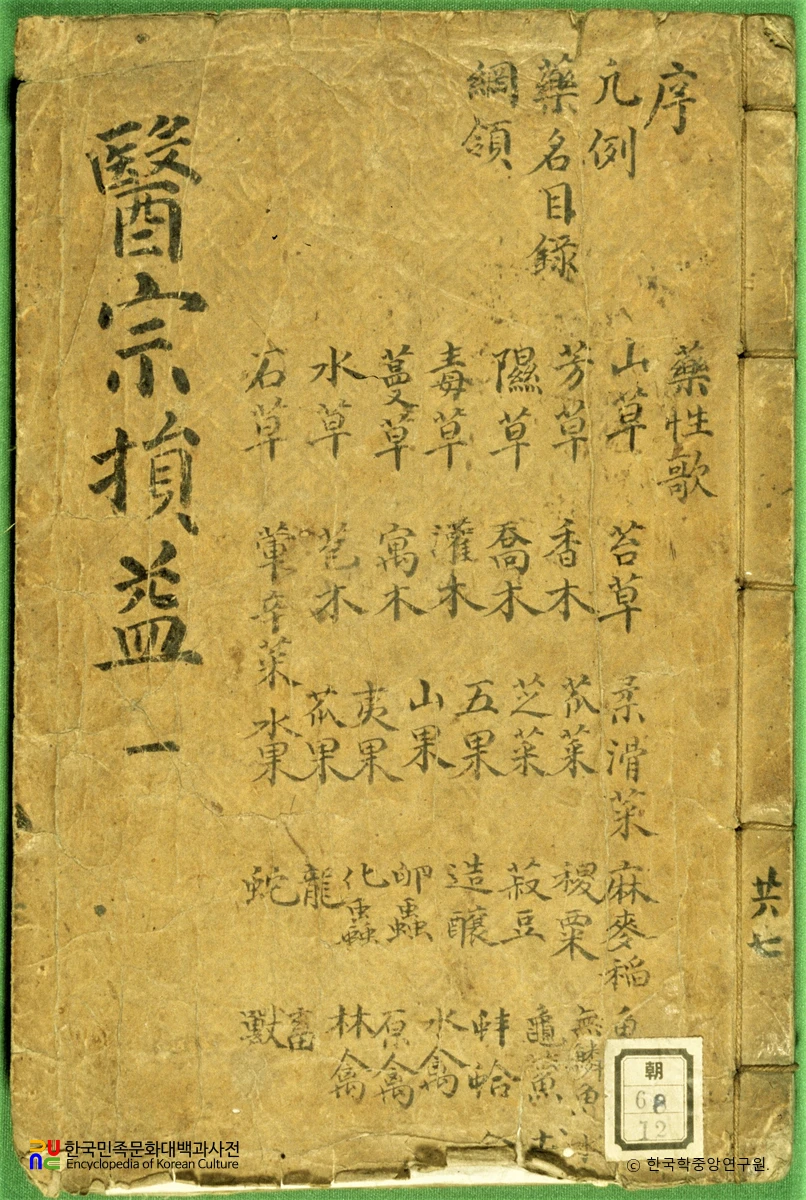 序
凡例
藥名目錄
綱領
藥性歌
山草 苔草 柔滑菜 麻麥稻 魚
芳草 香木 苽菜 稷粟 無鱗魚
隰草 喬木 芝菜 菽豆 龜
毒草 灌木 五果 造釀 蚌蛤
蔓草 寓木 山果 卵蟲 水禽
水草 苞木 夷果 化蟲 原禽
石草 葷辛菜 苽果 龍 林禽
水果 蛇 畜
獸
醫宗損益 一
共七
朝
68
12
한국민족문화대백과사전
Encyclopedia of Korean Culture
© 한국학중앙연구원